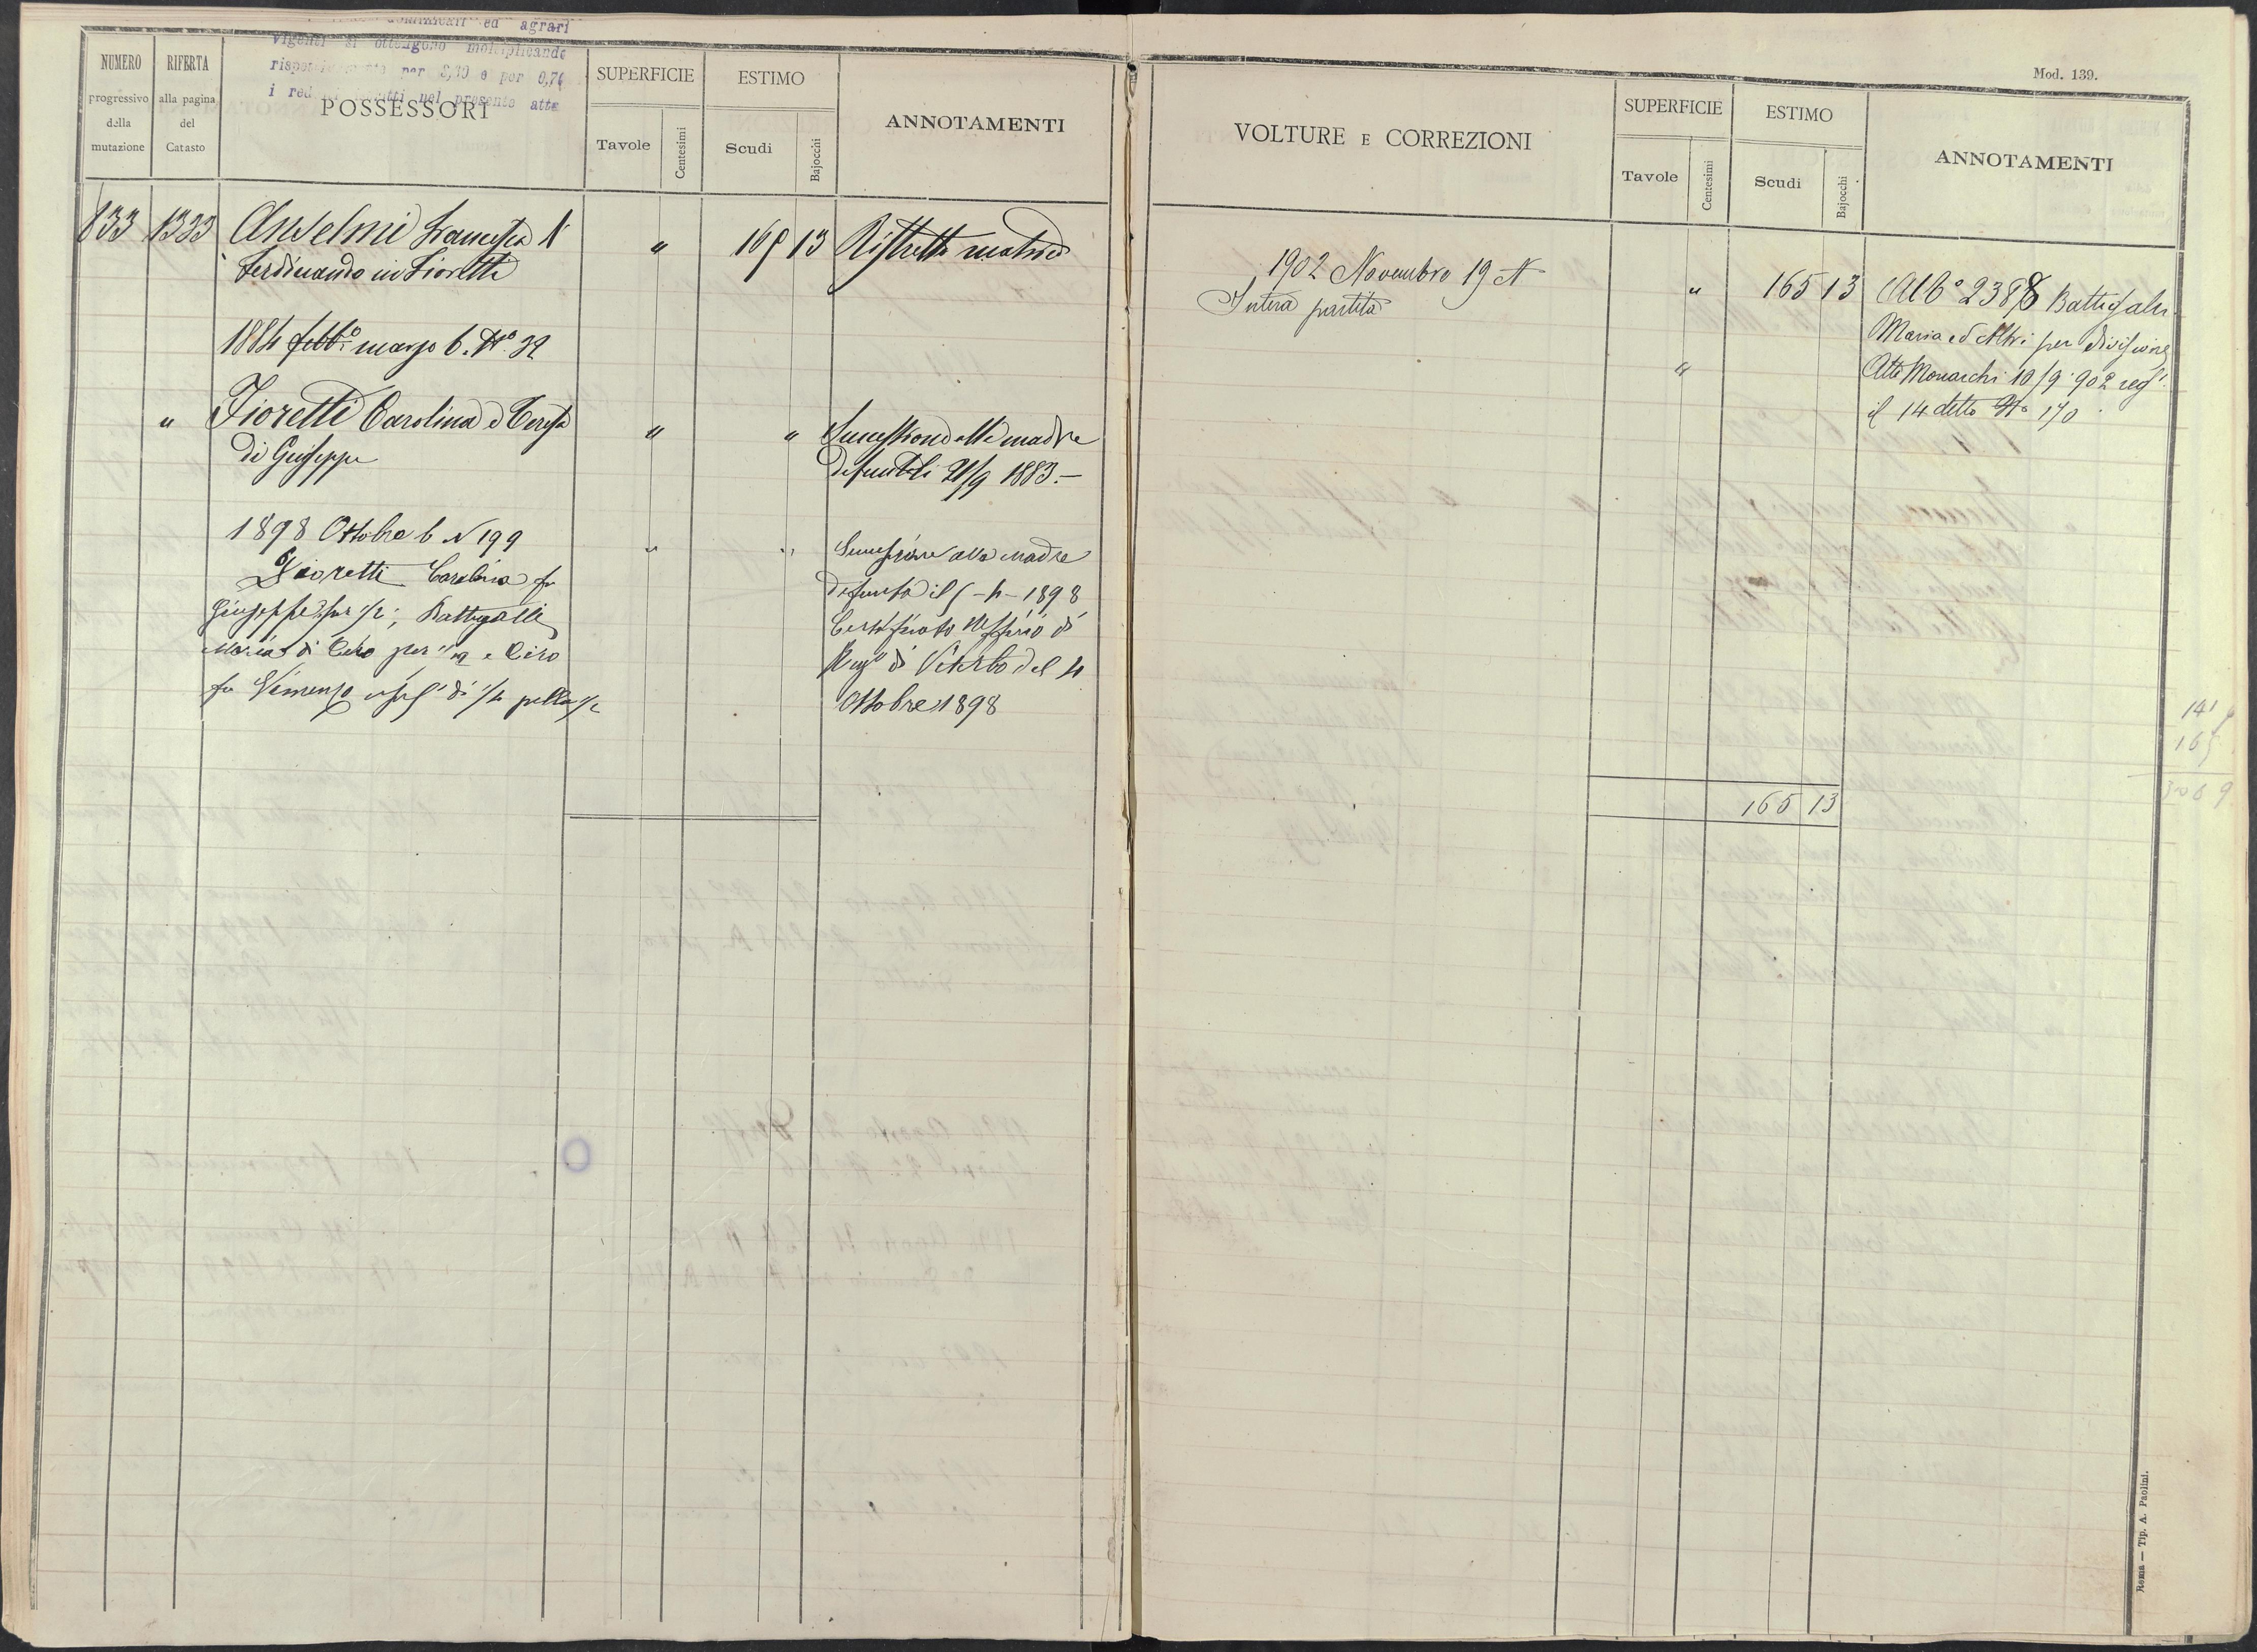 ed agrari
vigenti si ottengono moltiplicando
per 3,10 e per 0,76
i nel presente atto
NUMERO
progressivo
della
mutazione
RIFERTA
alla pagina
del
Catasto
POSSESSORI
SUPERFICIE
Tavole
Centesimi
ESTIMO
Scudi
Bajocchi
ANNOTAMENTI
833 1323 Anselmi Francesca
Ferdinando in Fioretti
" 165 13 Ristretto matrice
1884 febb.º marzo 6. Nº 32
" Fioretti Carolina e Teresa
di Giuseppe
" " Successione alla madre
defunta li 21/9 1883.-
1898 Ottobre 6 N 199
Fioretti Carolina fu
Giuseppe per 1/2, Battigalli
Maria di Ciro per 1/2 e Ciro
fu Vincenzo di 1/4 1/2
" " Successione alla madre
defunta il 5-4-1898
Certificato Ufficio di
Reg.º di Viterbo del 4
Ottobre 1898
Mod. 139.
VOLTURE E CORREZIONI
SUPERFICIE
Tavole
Centesimi
ESTIMO
Scudi
Bajocchi
ANNOTAMENTI
1902 Novembre 19 N
Intera partita
" 165 13 Al 6º 2388 Battigalli
Maria ed Altri per divisione
" Atto Monarchi 10/9 902 reg.
il 14 detto Nº 170.
165 13
141
165
306 9
Roma — Tip. A. Paolini.